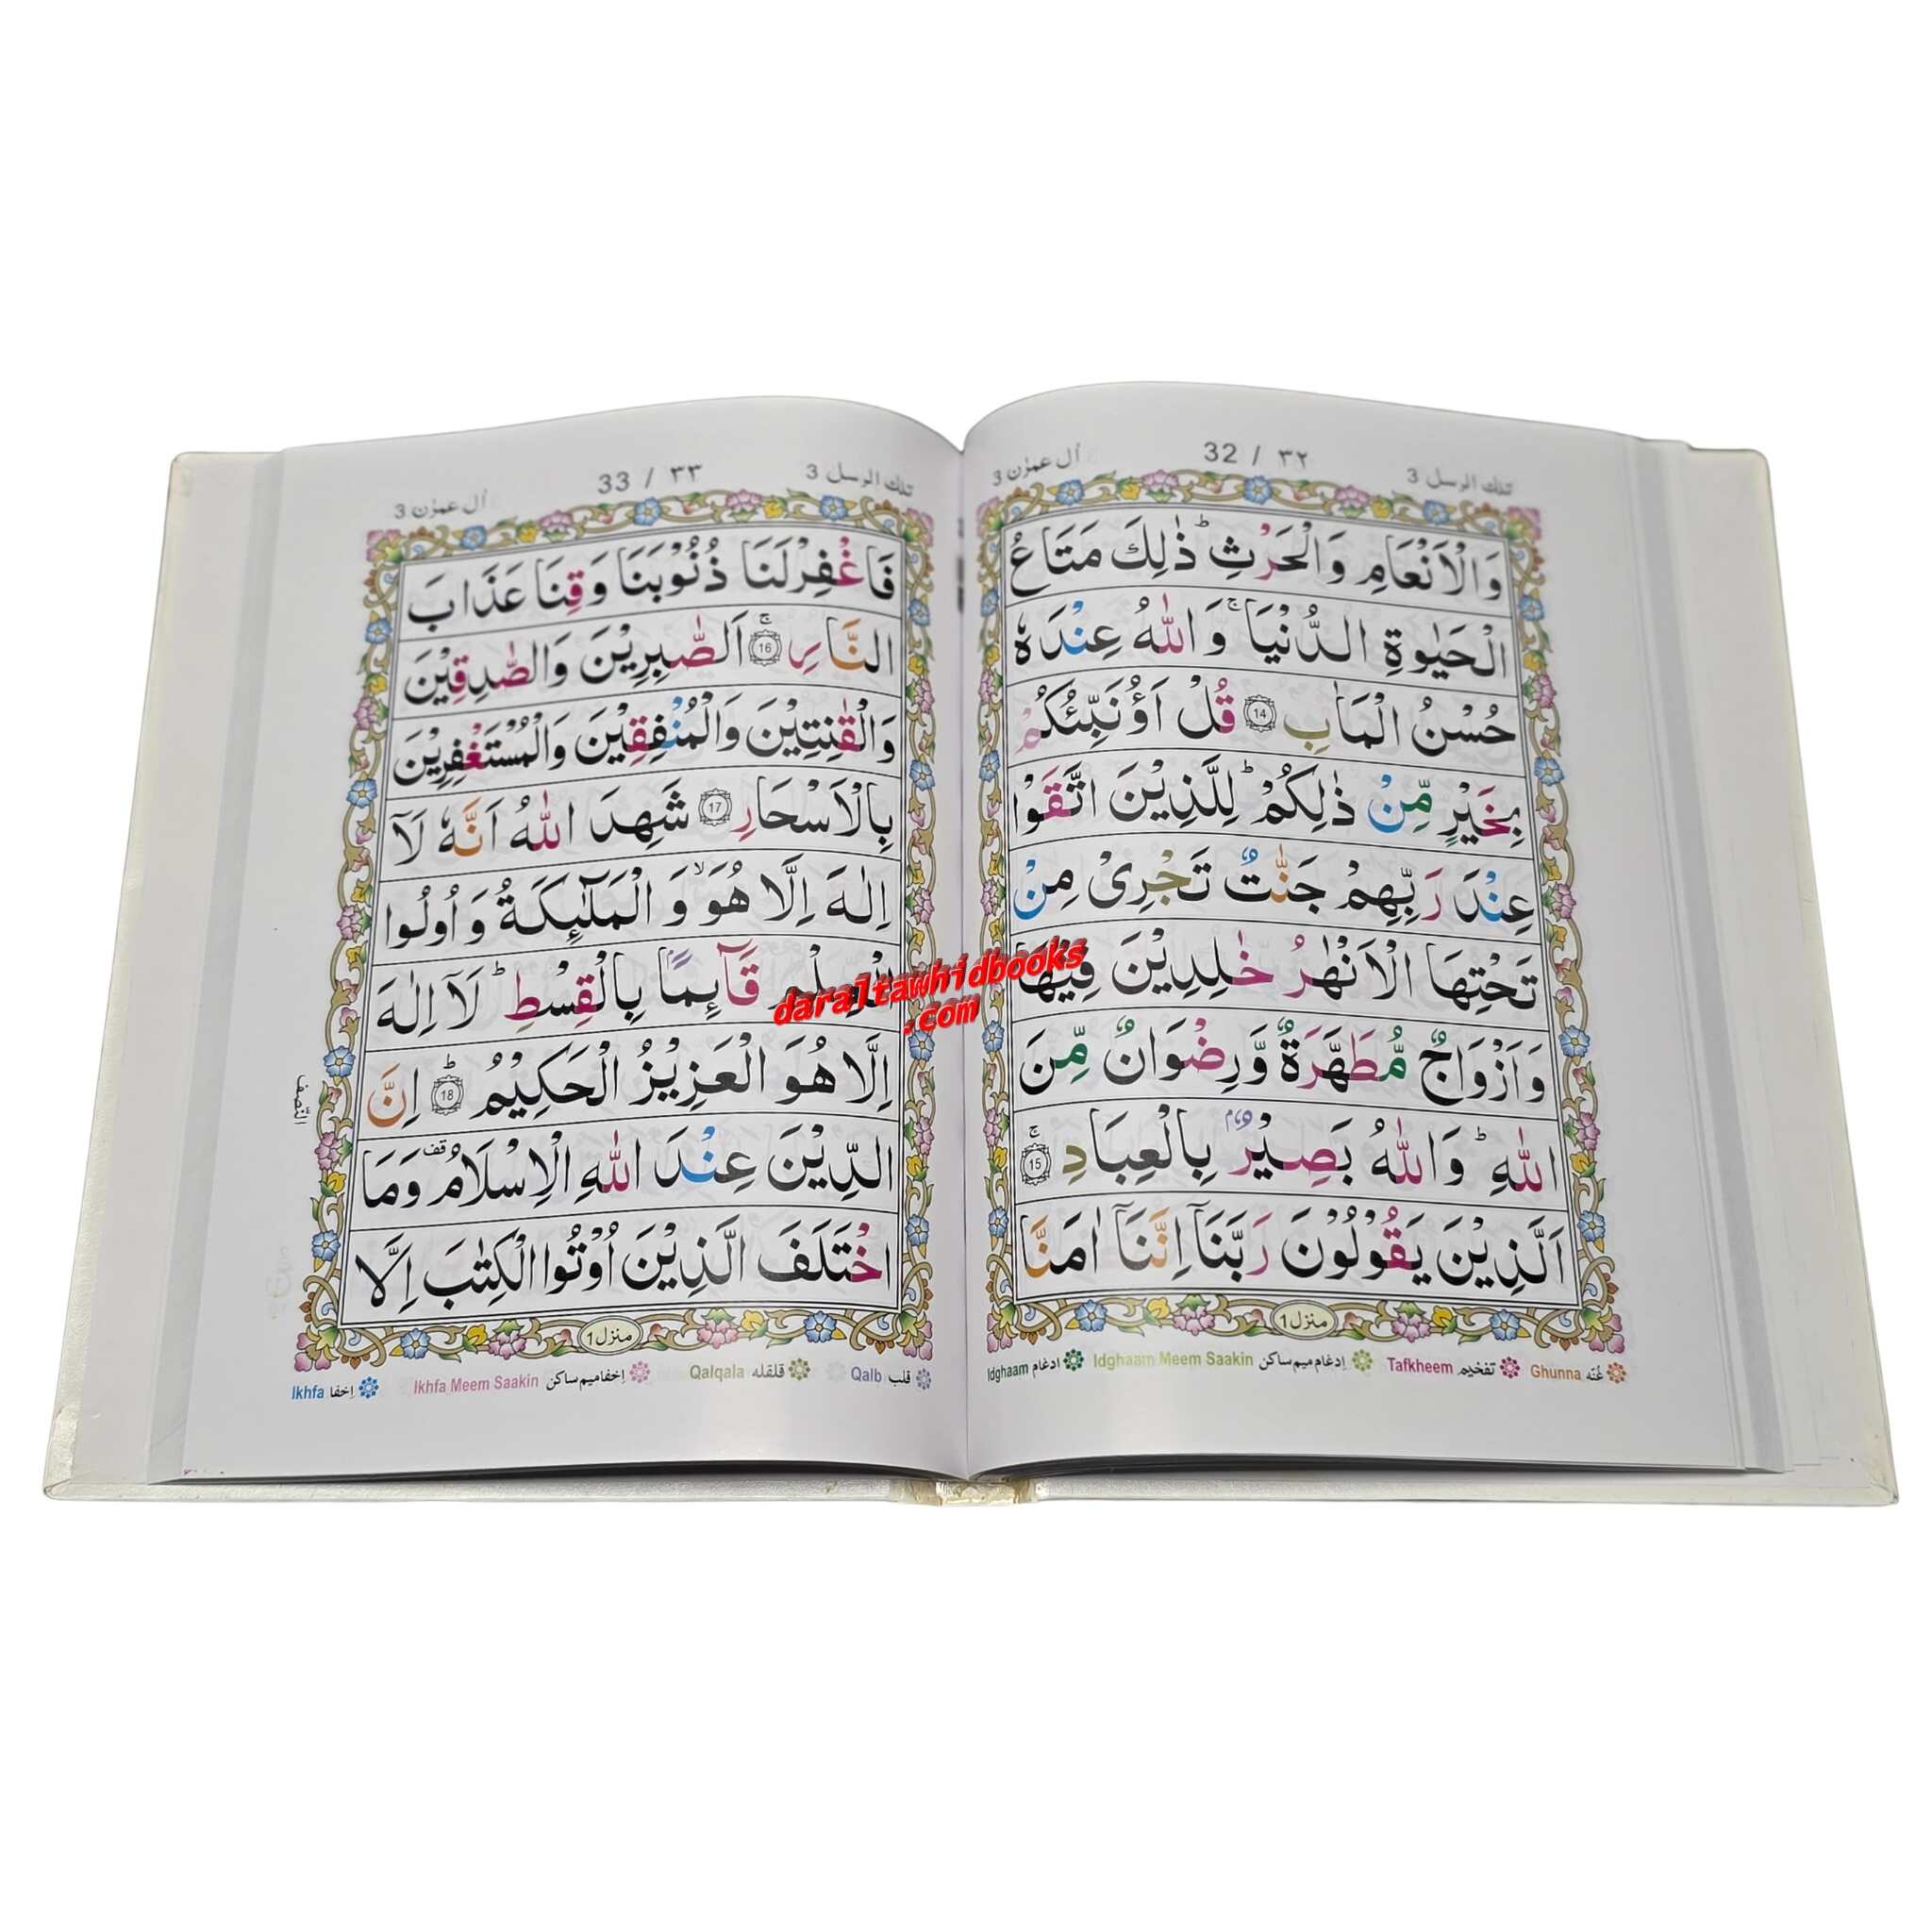 تلك الرسل 3
32 / ٣٢
اٰل عمرٰن 3
وَالْاَنْعَامِ وَالْحَرْثِ ؕ ذٰلِكَ مَتَاعُ
الْحَيٰوةِ الدُّنْيَا ۚ وَاللّٰهُ عِنْدَهٗ
حُسْنُ الْمَاٰبِ 14 قُلْ اَؤُنَبِّئُكُمْ
بِخَيْرٍ مِّنْ ذٰلِكُمْ ؕ لِلَّذِيْنَ اتَّقَوْا
عِنْدَ رَبِّهِمْ جَنّٰتٌ تَجْرِىْ مِنْ
تَحْتِهَا الْاَنْهٰرُ خٰلِدِيْنَ فِيْهَا
وَاَزْوَاجٌ مُّطَهَّرَةٌ وَّرِضْوَانٌ مِّنَ
اللّٰهِ ؕ وَاللّٰهُ بَصِيْرٌۢ بِالْعِبَادِ ۚ 15
اَلَّذِيْنَ يَقُوْلُوْنَ رَبَّنَاۤ اِنَّنَاۤ اٰمَنَّا
منزل 1
Ghunna غُنّه Tafkheem تفخيم Idghaam Meem Saakin اِدغام ميم ساكن Idghaam ادغام
تلك الرسل 3
33 / ٣٣
اٰل عمرٰن 3
فَاغْفِرْلَنَا ذُنُوْبَنَا وَقِنَا عَذَابَ
النَّارِ ۚ 16 اَلصّٰبِرِيْنَ وَالصّٰدِقِيْنَ
وَالْقٰنِتِيْنَ وَالْمُنْفِقِيْنَ وَالْمُسْتَغْفِرِيْنَ
بِالْاَسْحَارِ 17 شَهِدَ اللّٰهُ اَنَّهٗ لَاۤ
اِلٰهَ اِلَّا هُوَ ۙ وَ الْمَلٰٓئِكَةُ وَ اُولُوا
الْعِلْمِ قَآئِمًۢا بِالْقِسْطِ ؕ لَاۤ اِلٰهَ
اِلَّا هُوَ الْعَزِيْزُ الْحَكِيْمُ ؕ 18 اِنَّ
الدِّيْنَ عِنْدَ اللّٰهِ الْاِسْلَامُ قف وَمَا
اخْتَلَفَ الَّذِيْنَ اُوْتُوا الْكِتٰبَ اِلَّا
النّصف
منزل 1
Qalb قلب Qalqala قلقله Ikhfa Meem Saakin اِخفا ميم ساكن Ikhfa اِخفا
daraltawhidbooks
.com